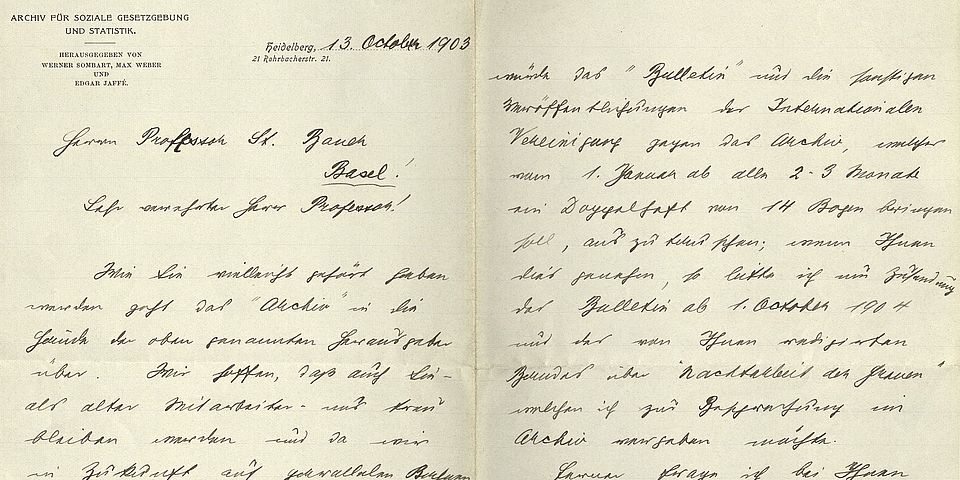 ARCHIV FÜR SOZIALE GESETZGEBUNG
UND STATISTIK.
HERAUSGEGEBEN VON
WERNER SOMBART, MAX WEBER
UND
EDGAR JAFFÉ.
Heidelberg, 13. October 1903
21 Rohrbacherstr. 21.
Herrn Professor St. Bauer
Basel!
Sehr verehrter Herr Professor!
Wie Sie vielleicht gehört haben
werden geht das "Archiv" in die
Hände der oben genannten Herausgeber
über. Wir hoffen, daß auch Sie -
als alter Mitarbeiter - uns treu
bleiben werden und da wir
in Zukunft auf parallelen Bahnen
würde das "Bulletin" und die sonstigen
Veröffentlichungen der Internationalen
Vereinigung gegen das Archiv, welches
vom 1. Januar ab alle 2-3 Monate
ein Doppelheft von 14 Bogen bringen
soll, auszutauschen; wenn Ihnen
dies genehm, so bitte ich um Zusendung
des Bulletin ab 1. October 1904
und des von Ihnen redigirten
Bandes über "Nachtarbeit der Frauen"
welchen ich zur Besprechung im
Archiv vergeben möchte.
Ferner frage ich bei Ihnen